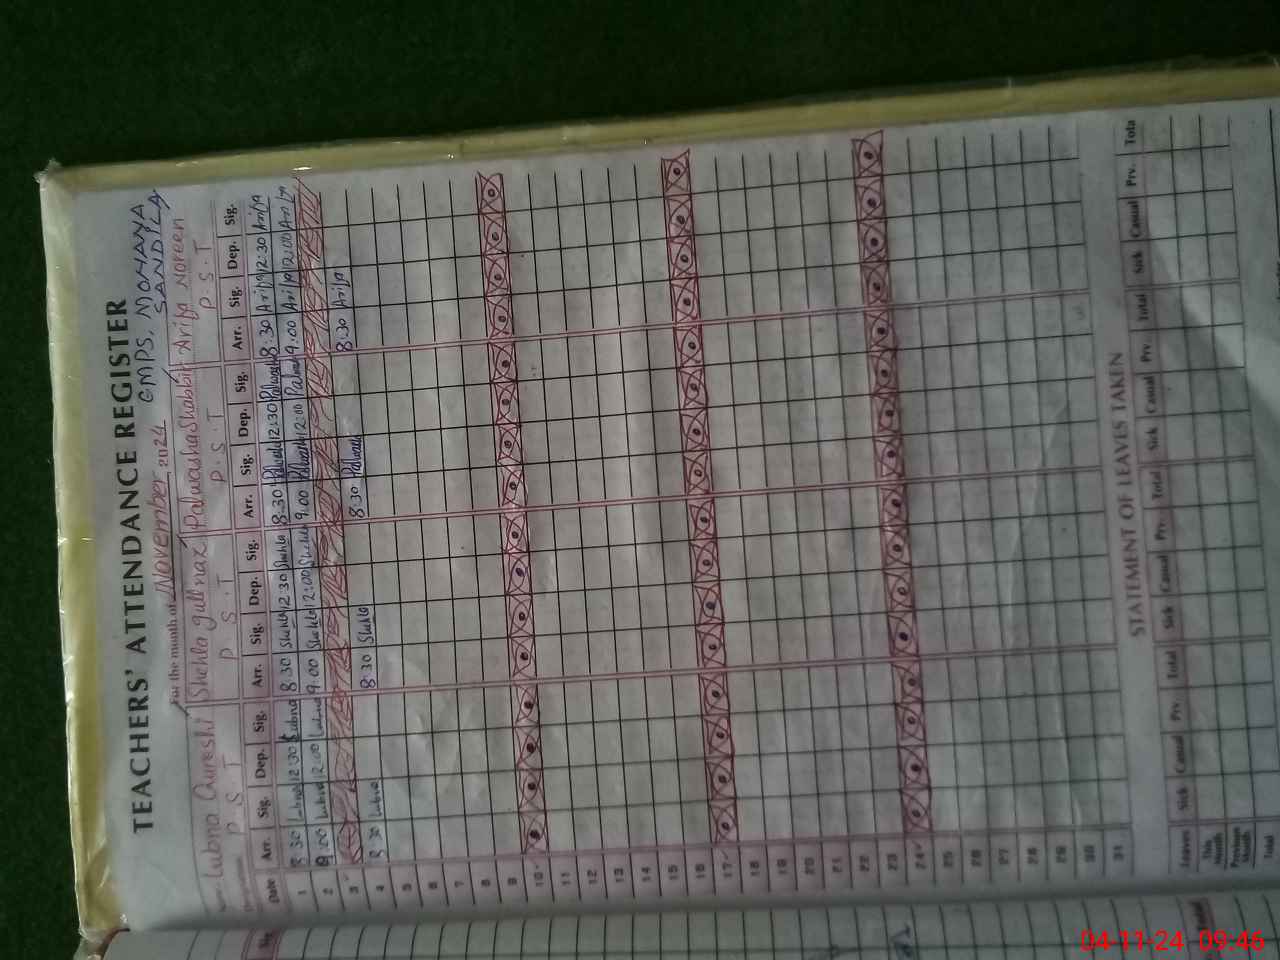 TEACHERS' ATTENDANCE REGISTER
For the month of November 2024 GMPS, MOHANA SANDILA
Lubna Qureshi Shehla gull naz Palwasha Shabbir Arifa Noreen
P S T P S T P S T P S T
Date Arr. Sig. Dep. Sig. Arr. Sig. Dep. Sig. Arr. Sig. Dep. Sig. Arr. Sig. Dep. Sig.
1 8:30 Lubna 12:30 Lubna 8:30 Shehla 12:30 Shehla 8:30 Palwash 12:30 Palwash 8:30 Arifa 12:30 Arifa
2 9:00 Lubna 12:00 Lubna 9:00 Shehla 12:00 Shehla 9:00 Palwash 12:00 Palwash 9:00 Arifa 12:00 Arifa
3
4 8:30 Lubna 8:30 Shehla 8:30 Palwash 8:30 Arifa
5
6
7
8
9
10
11
12
13
14
15
16
17
18
19
20
21
22
23
24
25
26
27
28
29
30
31
STATEMENT OF LEAVES TAKEN
Leaves Sick Casual Prv. Total Sick Casual Prv. Total Sick Casual Prv. Total Sick Casual Prv. Tota
This Month
Previous Month
Total
04-11-24 09:46